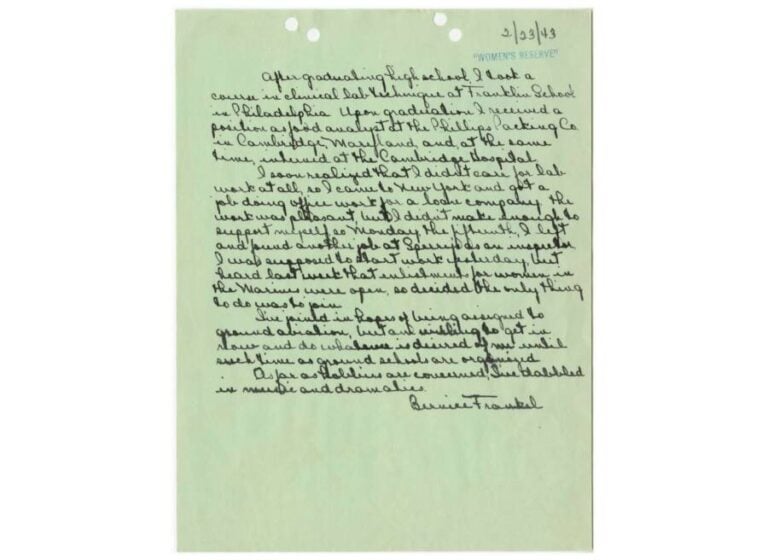 2/23/43
"WOMEN'S RESERVE"
After graduating high school, I took a
course in clinical lab technique at Franklin School
in Philadelphia. Upon graduation I received a
position as food analyst at the Phillips Packing Co
in Cambridge, Maryland, and, at the same
time, interned at the Cambridge Hospital.
I soon realized that I didn't care for lab
work at all, so I came to New York and got a
job doing office work for a loan company. The
work was pleasant, but I didn't make enough to
support myself so Monday the fifteenth, I left
and found another job at Sperry's as an inspector.
I was supposed to start work yesterday, but
heard last week that enlistments for women in
the Marines were open, so decided the only thing
to do was to join.
I've joined in hopes of being assigned to
ground aviation, but am willing to get in
now and do whatever is desired of me until
such time as ground schools are organized.
As far as hobbies are concerned, I've dabbled
in music and dramatics.
Bernice Frankel